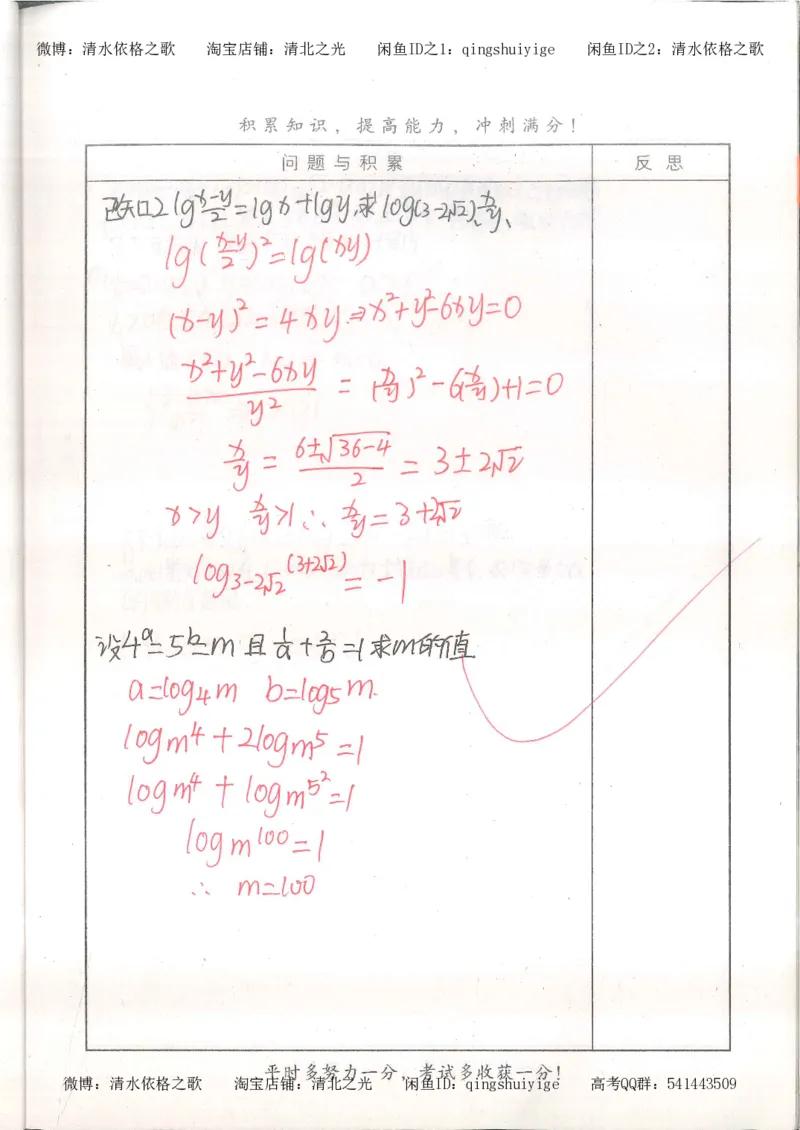 微博：清水依格之歌 淘宝店铺：清北之光 闲鱼ID之1：qingshuiyige 闲鱼ID之2：清水依格之歌
积累知识，提高能力，冲刺满分！
问题与积累 反思
已知2lg\frac{x-y}{2}=lgx+lgy,求log(3-2√2)\frac{x}{y}、
lg(\frac{x-y}{2})²=lg(xy)
(x-y)²=4xy⇒x²+y²-6xy=0
\frac{x²+y²-6xy}{y²}=(\frac{x}{y})²-6(\frac{x}{y})+1=0
\frac{x}{y}=\frac{6±√36-4}{2}=3±2√2
x>y \frac{x}{y}>1∴\frac{x}{y}=3+2√2
log3-2√2(3+2√2)=-1
设4ᵃ=5ᵇ=m且\frac{1}{a}+\frac{2}{b}=1求m的值
a=log₄m b=log₅m.
logm⁴+2logm⁵=1
logm⁴+logm5²=1
logm¹⁰⁰=1
∴ m=100
平时多努力一分，考试多收获一分！
微博：清水依格之歌 淘宝店铺：清北之光 闲鱼ID：qingshuiyige 高考QQ群：541443509